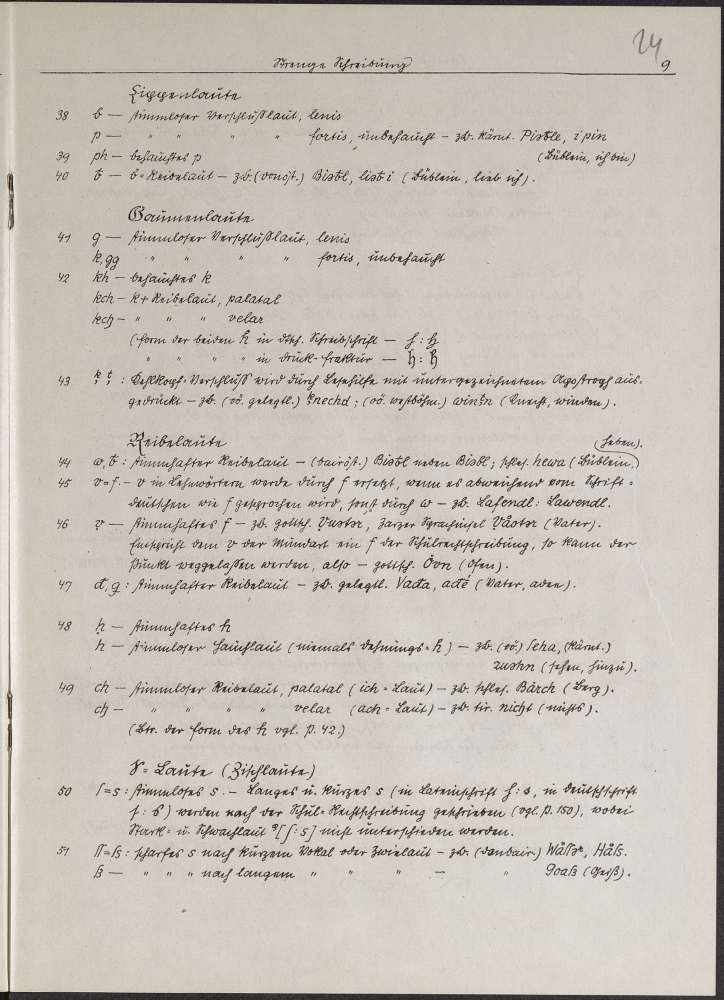 24
Strenge Schreibung 9
Lippenlaute
38 b — stimmloser Verschlußlaut, lenis
p — " " " " fortis, unbehaucht – zb. kärnt. Pistle, i pin
39 ph — behauchtes p (Büblein, ich bin)
40 ƀ — b-Reibelaut – zb. (donöst.) Biatbl, liabi (Büblein, lieb ich).
Gaumenlaute
41 g — stimmloser Verschlußlaut, lenis
k, gg " " " " fortis, unbehaucht
42 kh — behauchtes k
kch — k + Reibelaut, palatal
kcħ — " " " velar
(Form der beiden h in dtsch. Schreibschrift —
" " " " in Druck-Fraktur —
43 Kehlkopf-Verschluß wird durch Lesehilfe mit untergezeichnetem Apostroph aus-
gedrückt – zb. (oö. gelegtl.) knechd; (oö. westböhm.) winkn (Knecht, winden).
Reibelaute (heben).
44 w, ƀ: stimmhafter Reibelaut – (bairöst.) Biatbl neben Biabl; schles. hewa (Büblein,
45 v=f. – v in Lehnwörtern werde durch f ersetzt, wenn es abweichend vom Schrift-
deutschen wie f gesprochen wird, sonst durch w – zb. Lafendl: Lawendl.
46 v — stimmhaftes f – zb. gottsch. Vuater, Zarzer Sprachinsel Våotar (Vater).
Entspricht dem v der Mundart ein f der Schulrechtschreibung, so kann der
Punkt weggelassen werden, also – gottsch. Ovn (Ofen).
47 đ, g: stimmhafter Reibelaut – zb. gelegtl. Vađa, ađé (Vater, adee).
48 h — stimmhaftes h
h — stimmloser Hauchlaut (niemals Dehnungs-h) – zb. (oö.) seha, (kärnt.)
zuahn (sehen, hinzu).
49 ch — stimmloser Reibelaut, palatal (ich-Laut) – zb. schles. Bärch (Berg).
cħ — " " " " velar (ach-Laut) – zb. tir. nicħt (nichts).
(Btr. der Form des h vgl. P. 42.)
S-Laute (Zischlaute)
50 ſ=s: stimmloses s. – Langes u. kurzes s (in Lateinschrift ſ: s, in Deutschschrift
ſ: s) werden nach der Schul-Rechtschreibung geschrieben (vgl. P. 150), wobei
Stark- u. Schwachlaut [ſ: s] nicht unterschieden werden.
51 ſſ=ß: scharfes s nach kurzem Vokal oder Zwielaut – zb. (donbair.) Wåſſer, Håſs.
ß — " " " nach langem " " " – " Goaß (Geiß).